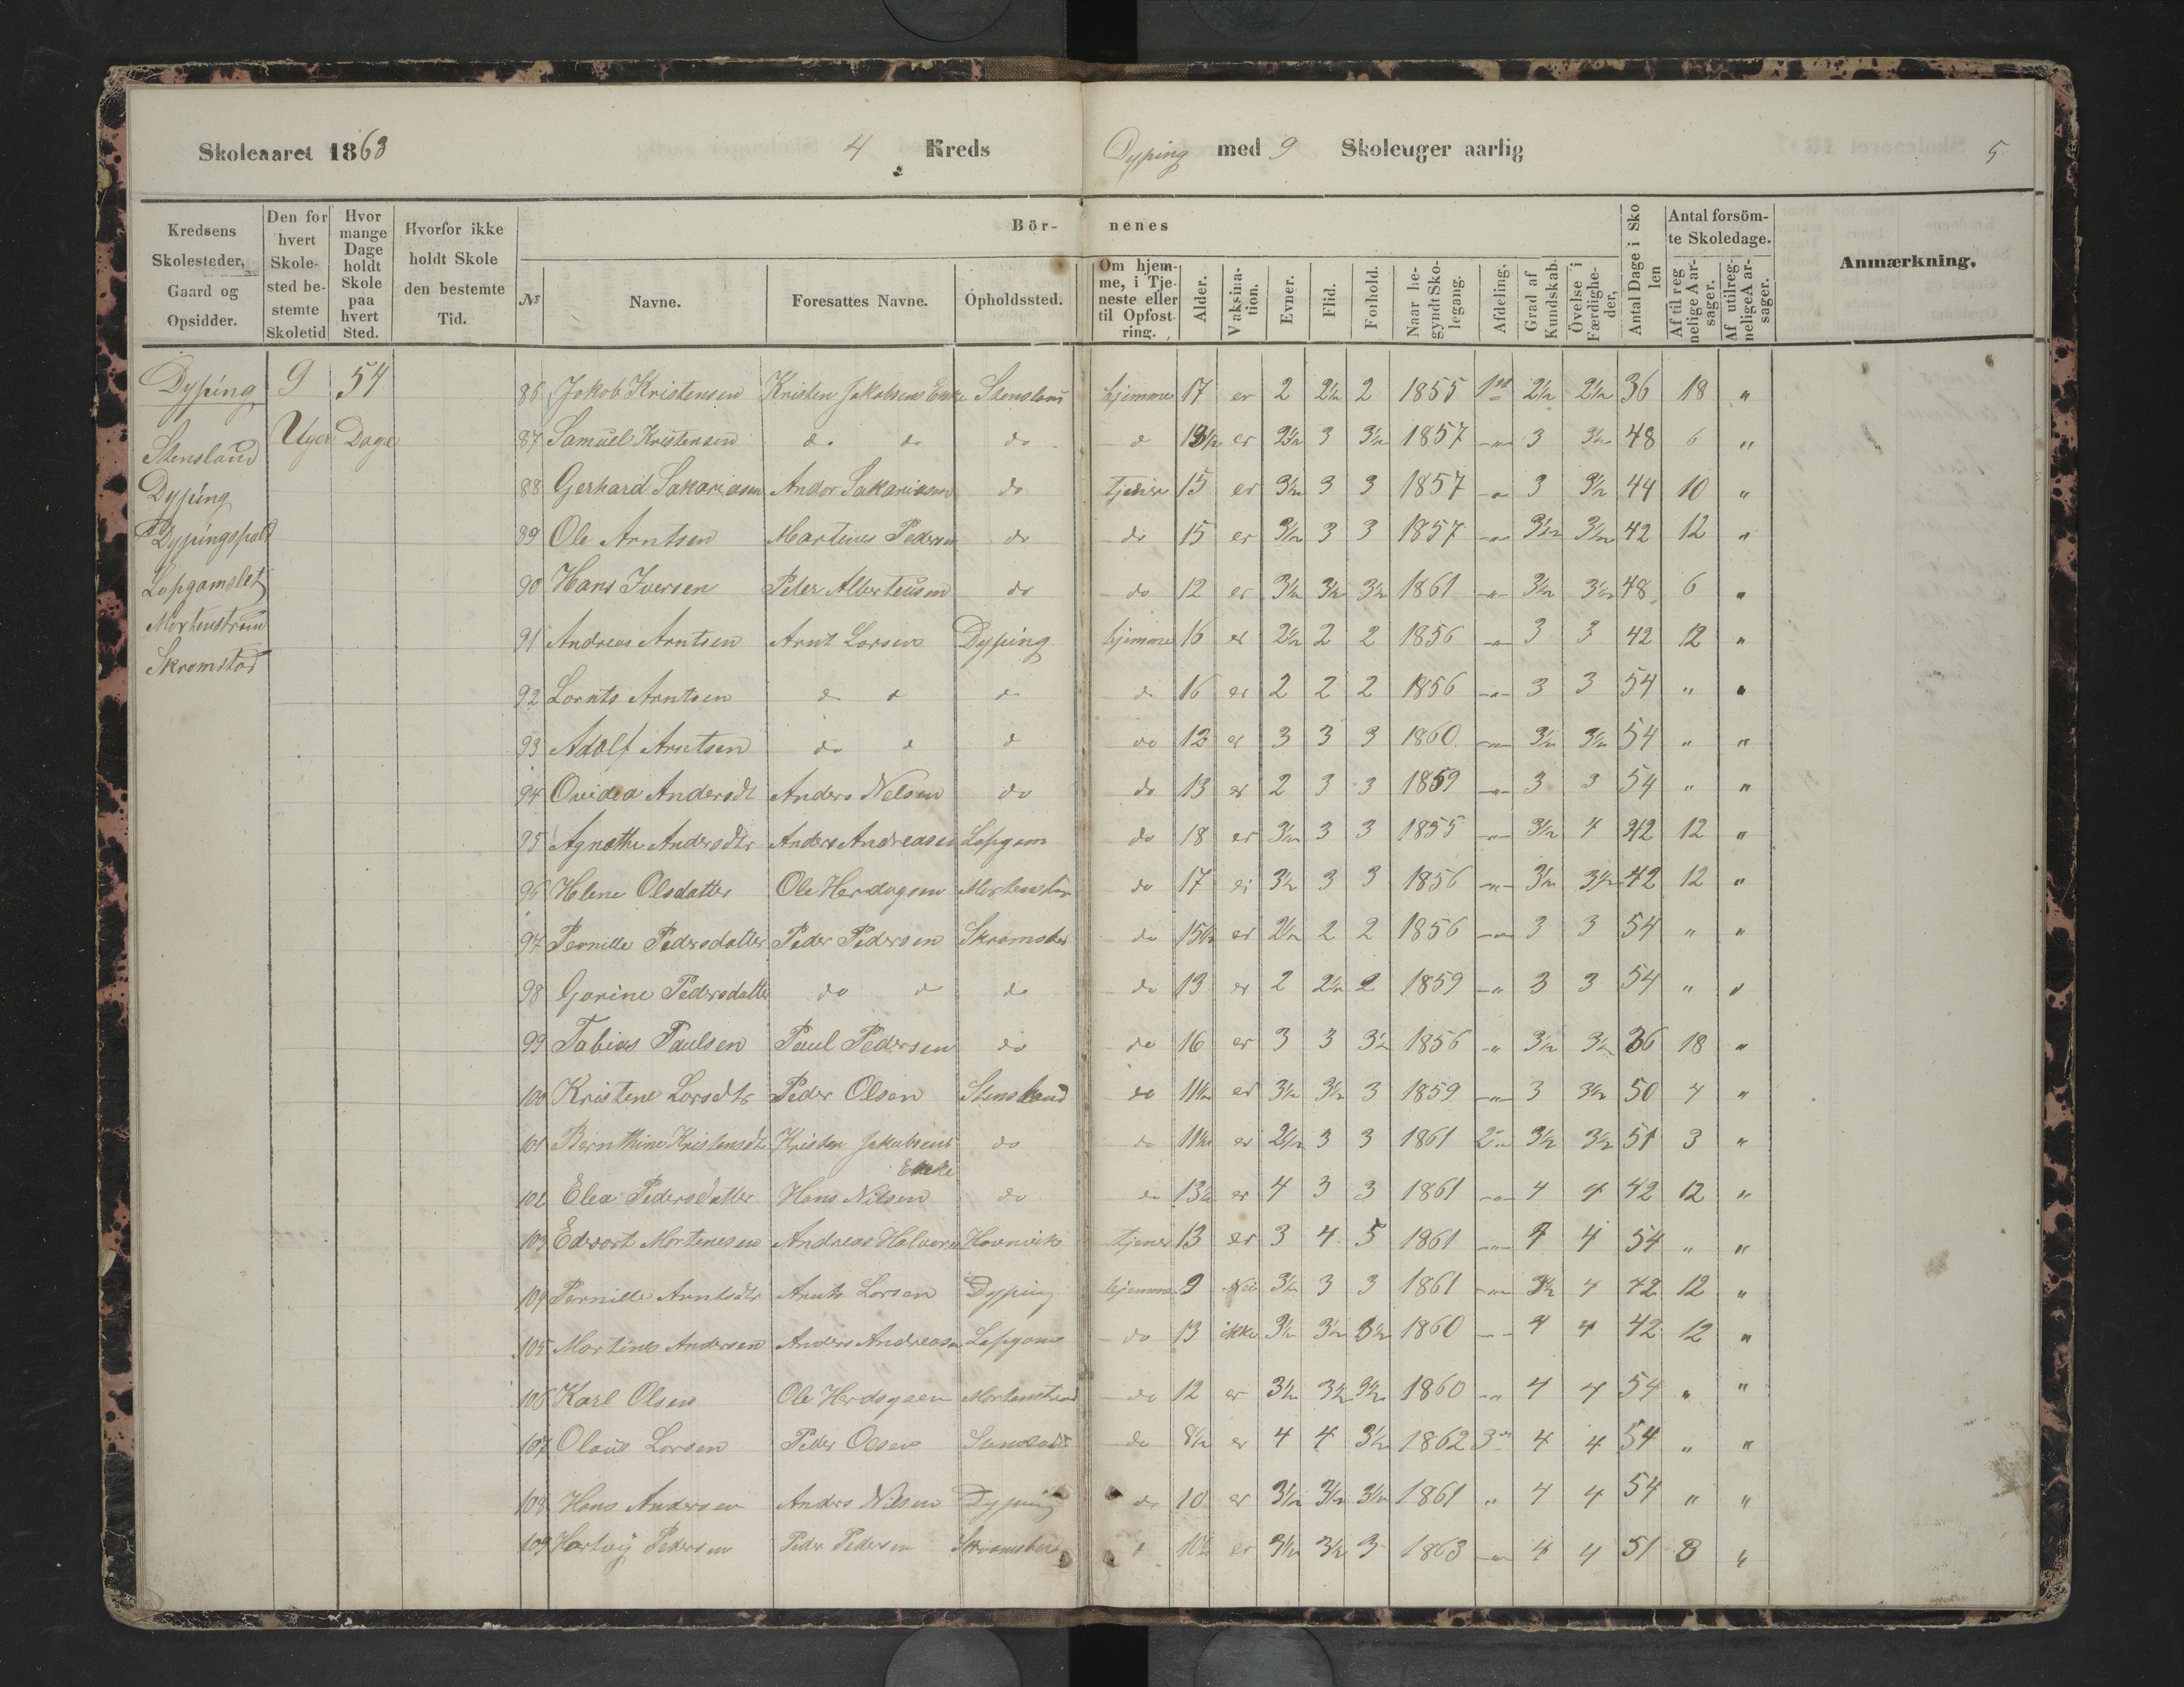 Skoleaaret 1863 4 Kreds Dyping med 9 Skoleuger aarlig 5
Kredsens Skolesteder, Gaard og Opsidder.
Den for hvert Skolested bestemte Skoletid
Hvor mange Dage holdt Skole paa hvert Sted.
Hvorfor ikke holdt Skole den bestemte Tid.
Bör- nenes
№
Navne.
Foresattes Navne.
Opholdssted.
Om hjemme, i Tjeneste eller til Opfostring.
Alder.
Vaksination.
Evner.
Flid.
Forhold.
Naar begyndt Skolegang.
Afdeling.
Grad af Kundskab.
Övelse i Færdigheder,
Antal Dage i Skolen
Antal forsömte Skoledage.
Af til regnelige Aarsager.
Af utilregnelige Aarsager.
Anmærkning.
Dyping 9 Uger 54 Dage
Stensland
Dyping
Mortenstrand
Skromstad
86 Jakob Kristensen Kristen Jakobsens Enke Stensland hjemme 17 er 2 2½ 2 1855 1ste 2½ 2½ 36 18 "
87 Samuel Kristensen do do do do er 2½ 3 3½ 1857 -"- 3 3½ 48 6 "
88 Gerhard Sakariasen Andor Sakariasen do Tjener 15 er 3½ 3 3 1857 -"- 3 3½ 44 10 "
89 Ole Arntsen Martines Pedersen do do 15 er 3½ 3 3 1857 -"- 3½ 3½ 42 12 "
90 Hans Iversen Peter Alberteusen do do 12 er 3½ 3½ 3½ 1861 -"- 3½ 3½ 48 6 "
91 Andreas Arntsen Arnt Larsen Dyping hjemme 16 er 2½ 2 2 1856 -"- 3 3 42 12 "
92 Lornts Arntsen do do do do 16 er 2 2 2 1856 -"- 3 3 54 " "
93 Adolf Arntsen do do do do 12 er 3 3 3 1860 -"- 3½ 3½ 54 " "
94 Ovidea Andersdt Anders Nelsen do do 13 er 2 3 3 1859 -"- 3 3 54 " "
95 Agnethe Andersdtr Anders Andreasen Lapgam do 18 er 3½ 3 3 1855 -"- 3½ 4 42 12 "
96 Helene Olsdatter Ole Herdagsen do 17 er 3½ 3 3 1856 -"- 3½ 3½ 42 12 "
97 Pernille Pedersdatter Peder Pedersen Skromstad do 15½ er 2½ 2 2 1856 -"- 3 3 54 " "
98 Garine Pedersdatter do do do do 13 er 2 2½ 2 1859 -"- 3 3 54 " "
99 Tabias Paulsen Paul Pedersen do do 16 er 3 3 3½ 1856 -"- 3½ 3½ 36 18 "
100 Kristene Larsdtr Peder Olsen Stensland do 11½ er 3½ 3½ 3 1859 -"- 3 3½ 50 4 "
101 Bernthine Kristensdt Kristen Jakobsens Enke do do 11½ er 2½ 3 3 1861 2den 3½ 3½ 51 3 "
102 Elea Pedersdatter Hans Nilsen do do 13½ er 4 3 3 1861 -"- 4 4 42 12 "
103 Edvart Mortensen Andreas Halvorsen Havnvik tjener 13 er 3 4 5 1861 -"- 4 4 54 " "
104 Pernille Arntsdtr Arnts Larsen Dyping hjemme 9 Nei 3½ 3 3 1861 -"- 3½ 4 42 12 "
105 Martines Andersen Anders Andreasen Lapgam do 13 ikke 3½ 3½ 3½ 1860 - - 4 4 42 12 "
106 Karl Olsen Ole Herdagsen Mortenstrand do 12 er 3½ 3½ 3½ 1860 -"- 4 4 54 " "
107 Olaus Larsen Peder Olsen do 8½ er 4 4 3½ 1862 3die 4 4 54 " "
108 Hans Andersen Anders Nilsen Dyping do 10 er 3½ 3½ 3½ 1861 " 4 4 54 " "
109 Hartvig Pedersen Peder Pedersen do 10½ er 3½ 3½ 3 1863 -"- 4 4 51 3 "